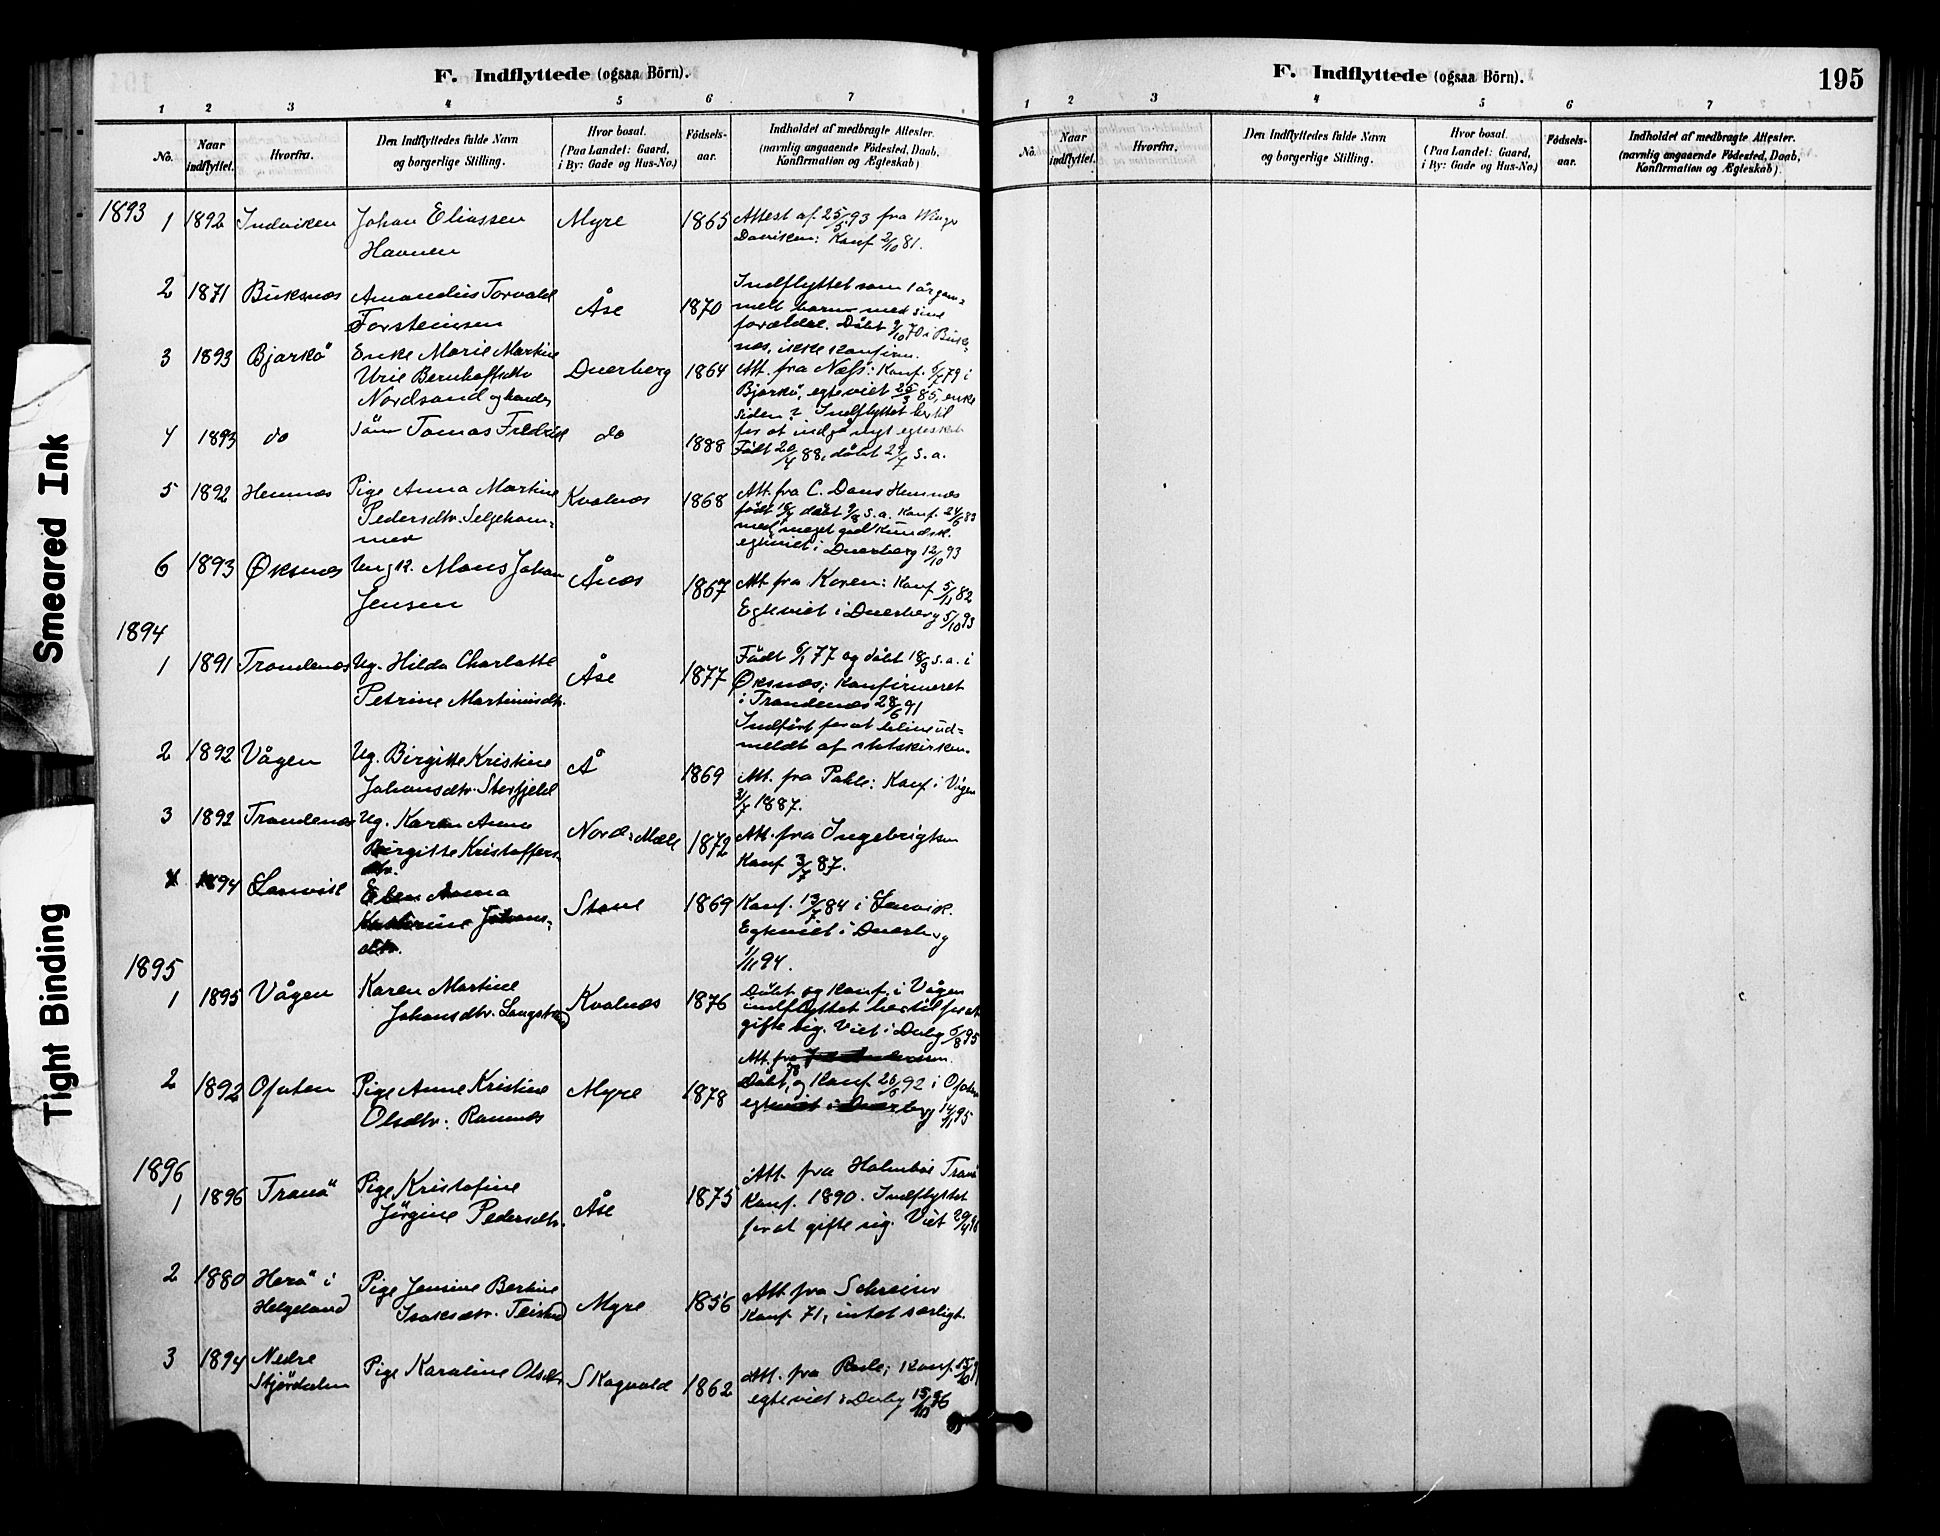 Smeared Ink
Tight Binding
F. Indflyttede (ogsaa Börn).
1 2 3 4 5 6 7
No.
Naar indflyttet.
Hvorfra.
Den Indflyttedes fulde Navn
og borgerlige Stilling.
Hvor bosat.
(Paa Landet: Gaard,
i By: Gade og Hus-No.)
Födsels-
aar.
Indholdet af medbragte Attester.
(navnlig angaaende Födested, Daab,
Konfirmation og Ægteskab)
1893
1 1892 Indviken Johan Eliassen Myre 1865 Attest af 25/5 93 fra
Havnen
Davviken: Konf 2/10 81.
2 1871 Buksnæs Amandus Torvald Åse 1870 Indflyttet som 1 årgam=
Torsteinsen
melt barn med sine
forældre. Döbt 9/10 70 i Buks
næs, ikke konfirm.
3 1893 Bjarkö Enke Marie Martine Dverberg 1864 Att. fra Næss: Konf. 6/7 79 i
Urie Bernhoffsdtr
Nordsand og hendes
Bjarkö, egteviet 25/3 85, enke
siden ? Indflyttet hertil
for at indgå nyt egteskab
4 1893 do sön Tomas Fredrik do 1888 Födt 20/4 88, döbt 29/7 s. a.
5 1892 Hemnæs Pige Anna Martine Kvalnæs 1868 Att. fra C. Dons Hemnæs
Pedersdtr. Seljeham=
mer
födt döbt 9/8 s. a. Konf. 24/6 83
med meget god kundsk.
egteviet i Dverberg 12/10 93
6 1893 Øksnæs Ungk. Mons Johan Ånæs 1867 Att. fra Koren: Konf
Jensen
Egteviet i Dverberg 5/10 93
1894
1 1891 Trondenæs Ug. Hilda Charlotte Åse 1877 Födt 6/1 77 og döbt 18/3 s. a. i
Petrine Martinusdtr.
Øksnæs; konfirmeret
i Trondenæs 28/6 91
Indfört for at blive ud=
meldt af statskirken.
2 1892 Vågen Ug. Birgitte Kristine Å 1869 Att. fra Konf i Vågen
Johansdtr. Storfjeld
3/7 1887.
3 1892 Trondenæs Ug. Karen Anna Nord: Mæle 1872 Att. fra Ingebrigtsen
Birgitte Kristoffers=
dtr.
Konf 3/7 87.
4 1894 Anna Stave 1869 Konf. 13/7 84 i
Johans=
dtr.
Egteviet i Dverberg
1/11 94.
1895
1 1895 Vågen Karen Martine Kvalnæs 1876 Döbt og Konf. i Vågen
Johansdtr.
indflyttet hertil for at
gifte sig. Viet i Dvbg 6/8 95
2 1892 Ofoten Pige Anne Kristine Myre 1878 Att. fra
Olsdtr. Ramnes
Döbt, og Konf. 26/6 92 i Ofoten
egteviet i Dverberg 14/11 95
1896
1 1896 Tranö Pige Kristofine Åse 1875 Att. fra Holmboe Tranö
Jörgine Pedersdtr.
Konf. 1890. Indflyttet
for at gifte sig. Viet
2 1880 Herö i Pige Jensine Bertine Myre 1856 Att fra Schreiner
Helgeland Isaksdtr.
Konf. 71, intet særligt.
3 1894 Nedre Pige Karoline Olsdtr Skogvold 1862 Att. fra Konf.
Stjördalen
egteviet i Dvbg
F. Indflyttede (ogsaa Börn).
195
1 2 3 4 5 6 7
No.
Naar indflyttet.
Hvorfra.
Den Indflyttedes fulde Navn
og borgerlige Stilling.
Hvor bosat.
(Paa Landet: Gaard,
i By: Gade og Hus-No.)
Födsels-
aar.
Indholdet af medbragte Attester.
(navnlig angaaende Födested, Daab,
Konfirmation og Ægteskab)